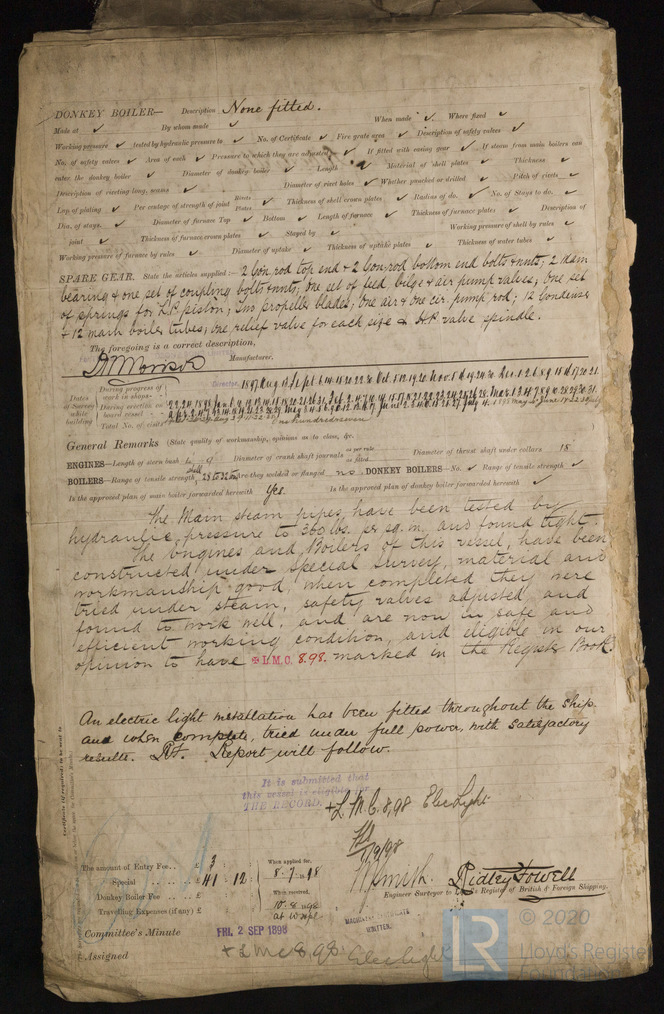 DONKEY BOILER— Description None fitted.
Made at ✓ By whom made ✓ When made ✓ Where fixed ✓
Working pressure ✓ tested by hydraulic pressure to ✓ No. of Certificate ✓ Fire grate area ✓ Description of safety valves ✓
No. of safety valves ✓ Area of each ✓ Pressure to which they are adjusted ✓ If fitted with easing gear ✓ If steam from main boilers can
enter the donkey boiler ✓ Diameter of donkey boiler ✓ Length ✓ Material of shell plates ✓ Thickness ✓
Description of riveting long. seams ✓ Diameter of rivet holes ✓ Whether punched or drilled ✓ Pitch of rivets ✓
Lap of plating ✓ Per centage of strength of joint Rivets Plates ✓ Thickness of shell crown plates ✓ Radius of do. ✓ No. of Stays to do. ✓
Dia. of stays. ✓ Diameter of furnace Top ✓ Bottom ✓ Length of furnace ✓ Thickness of furnace plates ✓ Description of
joint ✓ Thickness of furnace crown plates ✓ Stayed by ✓ Working pressure of shell by rules ✓
Working pressure of furnace by rules ✓ Diameter of uptake ✓ Thickness of uptake plates ✓ Thickness of water tubes ✓
SPARE GEAR. State the articles supplied:— 2 Con. rod top end & 2 Con. rod bottom end bolts & nuts; 2 Main
bearing & one set of coupling bolts & nuts; one set of feed, bilge & air pump valves; one set
of springs for L.P. piston; Two propeller blades; one air & one cir. pump rod; 12 Condenser
& 12 main boiler tubes; one relief valve for each size & H.P. valve spindle.
The foregoing is a correct description,
Manufacturer.
Dates of Survey while building
During progress of work in shops—
During erection on board vessel—
Total No. of visits One hundred & seven
General Remarks (State quality of workmanship, opinions as to class, &c.
ENGINES—Length of stern bush Diameter of crank shaft journals as per rule as fitted Diameter of thrust shaft under collars 18
BOILERS—Range of tensile strength Shell 28 to 32 tons Are they welded or flanged no DONKEY BOILERS—No. ✓ Range of tensile strength ✓
Is the approved plan of main boiler forwarded herewith Yes Is the approved plan of donkey boiler forwarded herewith ✓
The Main steam pipes have been tested by
hydraulic pressure to 360 lbs. per sq. in. and found tight.
The Engines and Boilers of this vessel, have been
constructed under Special Survey, material and
workmanship good, when completed they were
tried under steam, safety valves adjusted, and
found to work well, and are now in safe and
efficient working condition, and eligible in our
opinion to have ✠ L.M.C. 8.98. marked in the Register Book.
An electric light installation has been fitted throughout the ship
and when complete, tried under full power, with satisfactory
results. Report will follow.
It is submitted that
this vessel is eligible for
THE RECORD. + L.M.C. 8,98 Elec Light
7/9/98
The amount of Entry Fee.. £ 3 When applied for,
Special £ 41 . 12 8.7.98
Donkey Boiler Fee £ When received,
Travelling Expenses (if any) £
Ridley Fowell
Engineer Surveyor to Lloyd's Register of British & Foreign Shipping.
MACHINERY CERTIFICATE
WRITTEN.
Committee's Minute FRI. 2 SEP 1898
Assigned + LMC 8,98 Elec light
LR © 2020
Lloyd's Register
Foundation